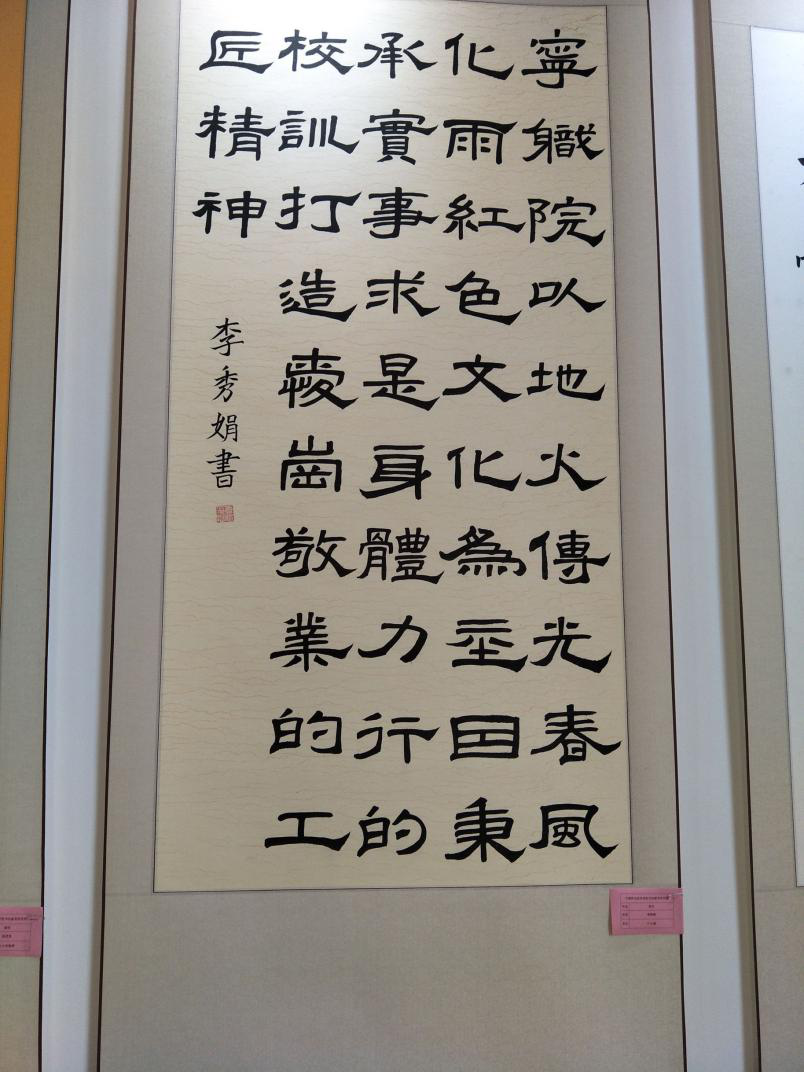 寧軄院以地火傳光春風
化雨紅色文化為基因秉
承實事求是身體力行的
校訓打造愛崗敬業的工
匠精神
李秀娟書